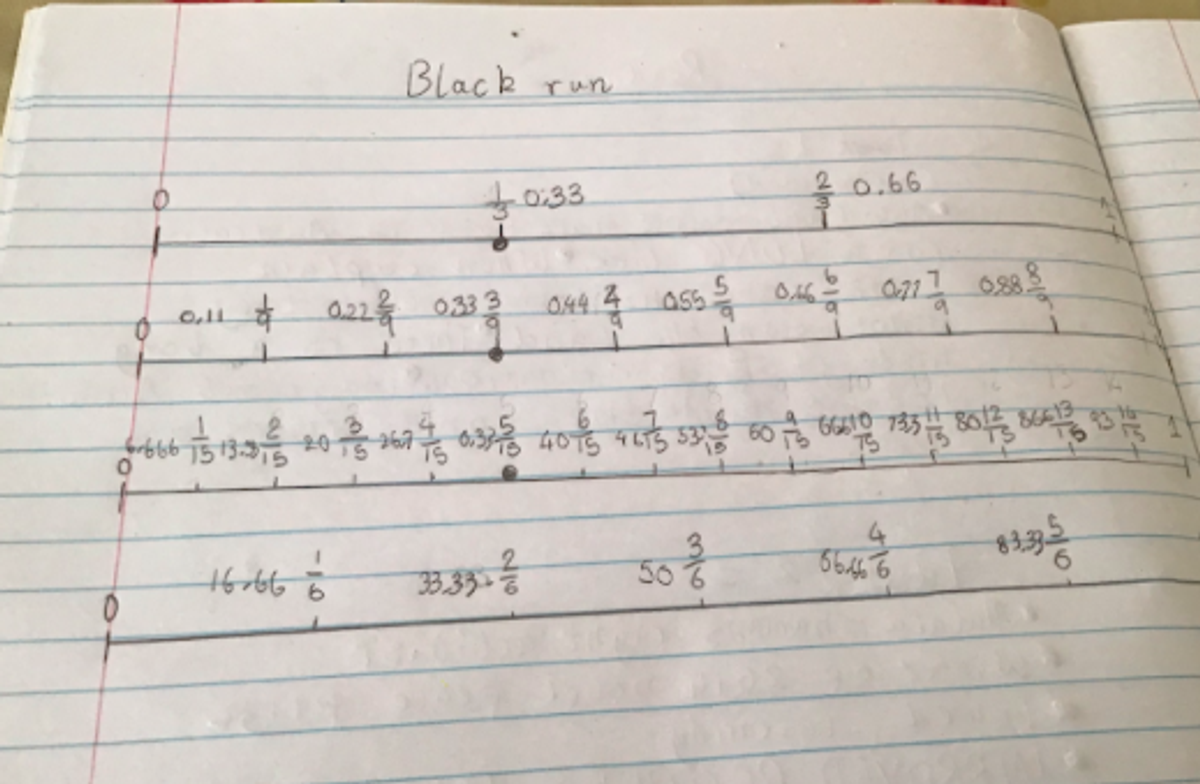 Black run
0 1/3 0.33 2/3 0.66 1
0 0.11 1/9 0.22 2/9 0.33 3/9 0.44 4/9 0.55 5/9 0.66 6/9 0.77 7/9 0.88 8/9
0 6.666 1/15 13.3 2/15 20 3/15 26.7 4/15 0.33 5/15 40 6/15 7/15 8/15 60 9/15 10/15 73.3 11/15 80 12/15 86.6 13/15 93 14/15 1
0 16.66 1/6 33.33 2/6 50 3/6 66.66 4/6 83.33 5/6